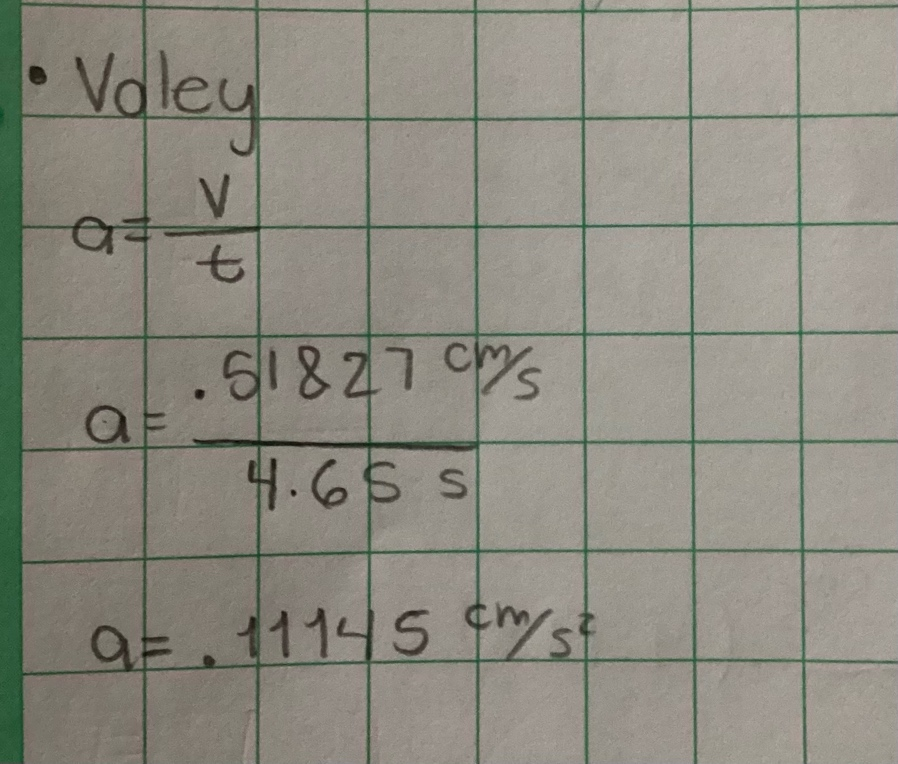 • Voley
a = V
t
a = .51827 cm/s
4.65 s
a = .11145 cm/s²